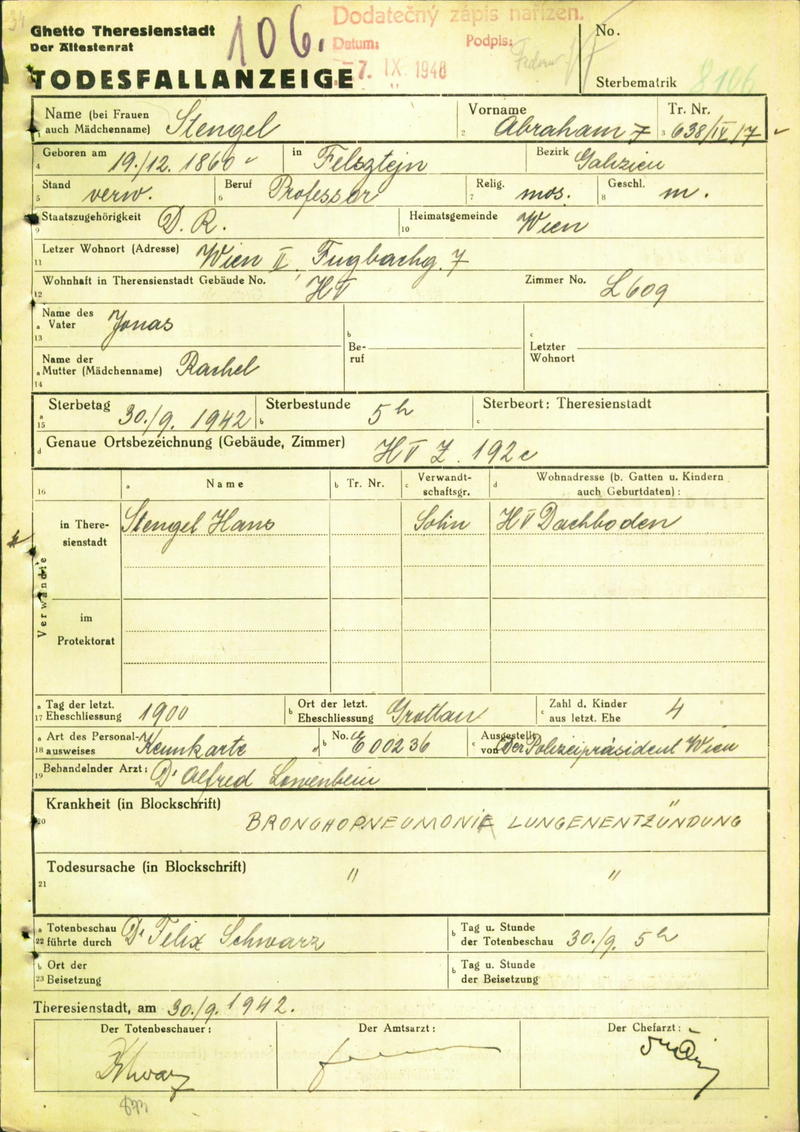 Ghetto Theresienstadt
Der Ältestenrat
106.
Dodatečný zápis nařízen.
Datum: -7. IX. 1948 Podpis:
No.
TODESFALLANZEIGE
Sterbematrik 8106
Name (bei Frauen auch Mädchenname) Stengel
Vorname Abraham
Tr. Nr. 638/IV/7
Geboren am 19./12. 1860 in Felsztejn Bezirk Galizien
Stand verw. Beruf Professor Relig. mos. Geschl. m.
Staatszugehörigkeit D. R. Heimatsgemeinde Wien
Letzer Wohnort (Adresse) Wien II. Fugbachg. 7
Wohnhaft in Therensienstadt Gebäude No. HV Zimmer No. L 609
Name des Vater Jonas
Beruf
Letzter Wohnort
Name der Mutter (Mädchenname) Rachel
Sterbetag 30./9. 1942 Sterbestunde 5 h Sterbeort: Theresienstadt
Genaue Ortsbezeichnung (Gebäude, Zimmer) HV Z. 192c
Name Tr. Nr. Verwandtschaftsgr. Wohnadresse (b. Gatten u. Kindern auch Geburtdaten):
Verwandte
in Theresienstadt Stengel Hans Sohn HV Dachboden
im Protektorat
Tag der letzt. Eheschliessung 1900 Ort der letzt. Eheschliessung Grottau Zahl d. Kinder aus letzt. Ehe 4
Art des Personalausweises Kennkarte No. E 00236 Ausgestellt von Der Polizeipräsident Wien
Behandelnder Arzt: Dr Alfred Löwenbein
Krankheit (in Blockschrift) BRONCHOPNEUMONIE LUNGENENTZÜNDUNG
Todesursache (in Blockschrift) " "
Totenbeschau führte durch Dr Felix Schwarz Tag u. Stunde der Totenbeschau 30./9. 5 h
Ort der Beisetzung Tag u. Stunde der Beisetzung
Theresienstadt, am 30./9. 1942.
Der Totenbeschauer: Der Amtsarzt: Der Chefarzt:
Schwarz